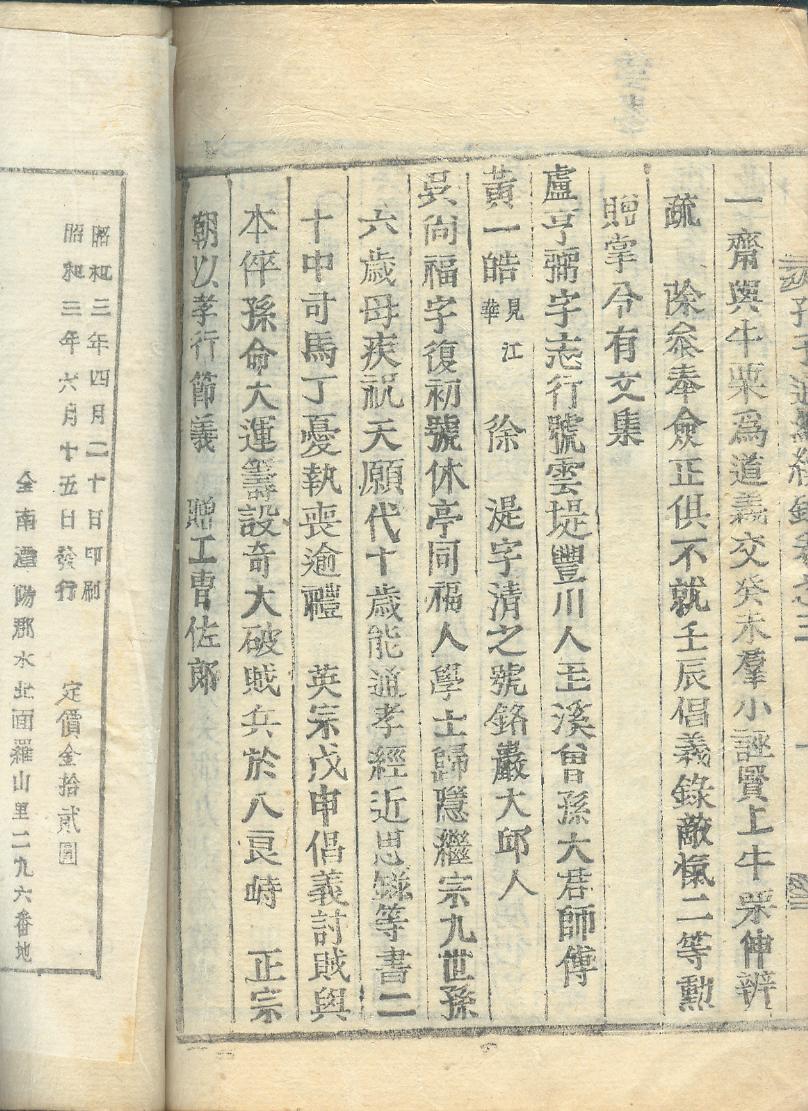 一齋與牛栗爲道義交癸未羣小誣賢上牛栗伸辨
疏 除參奉僉正俱不就壬辰倡義錄敵愾二等勲
贈掌令有文集
盧亨弼字志行號雲堤豐川人玉溪曾孫大君師傅
黃一皓 見江華 徐 湜字清之號銘巖大邱人
吳尙福字復初號休亭同福人學士歸隱繼宗九世孫
六歲母疾祝天願代十歲能通孝經近思錄等書二
十中司馬丁憂執喪逾禮 英宗戊申倡義討賊與
本倅孫命大運籌設奇大破賊兵於八良峙 正宗
朝以孝行節義 贈工曹佐郎
昭和三年四月二十日印刷
昭和三年六月十五日發行 定價金拾貳圓
全南潭陽郡水北面羅山里二九六番地